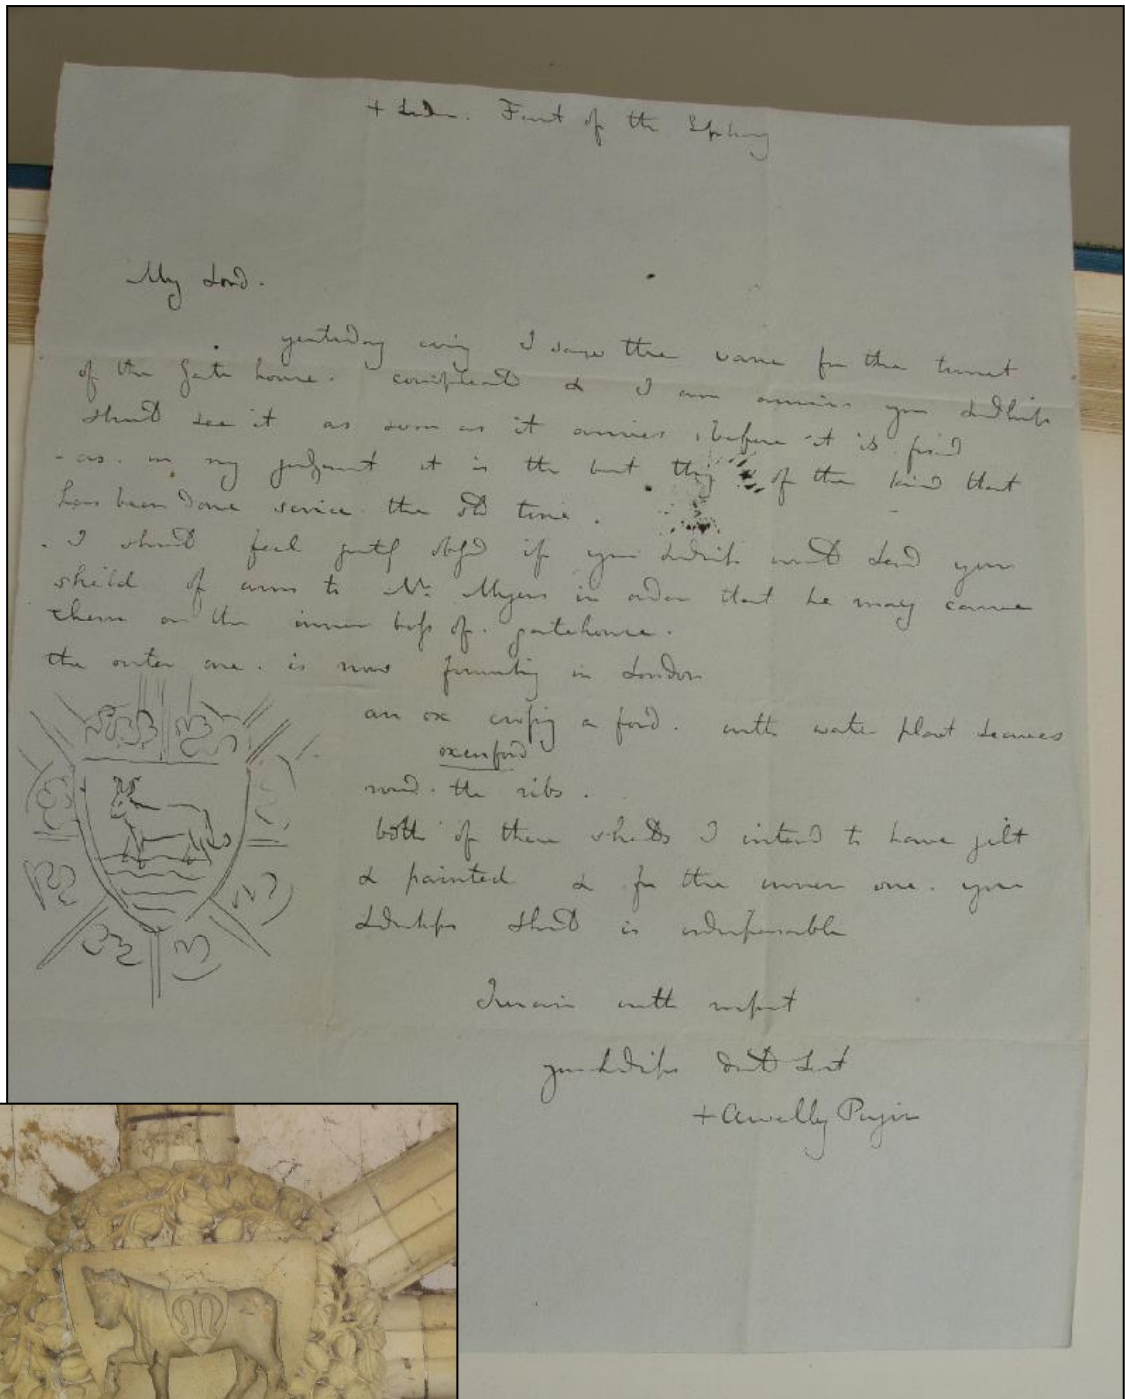 + Feast of the Epiphany
My Lord.
yesterday evening I saw the vane for the turret
of the Gate house. compleated & I am anxious your Lordship
should see it as soon as it arrives, before it is fixed
- as. in my judgment it is the best thing of the kind that
has been done since the old time.
I should feel greatly obliged if your Lordship would send your
shield of arms to Mr. Myers in order that he may carve
them on the inner boss of. gatehouse.
the outer one. is now in London
an ox crossing a ford. with water plant leaves
oxenford
round. the ribs.
both of these shields I intend to have gilt
& painted & for the inner one. your
Lordships shield is indispensable
I remain with respect
your Lordships devt Sert
+ AWelby Pugin